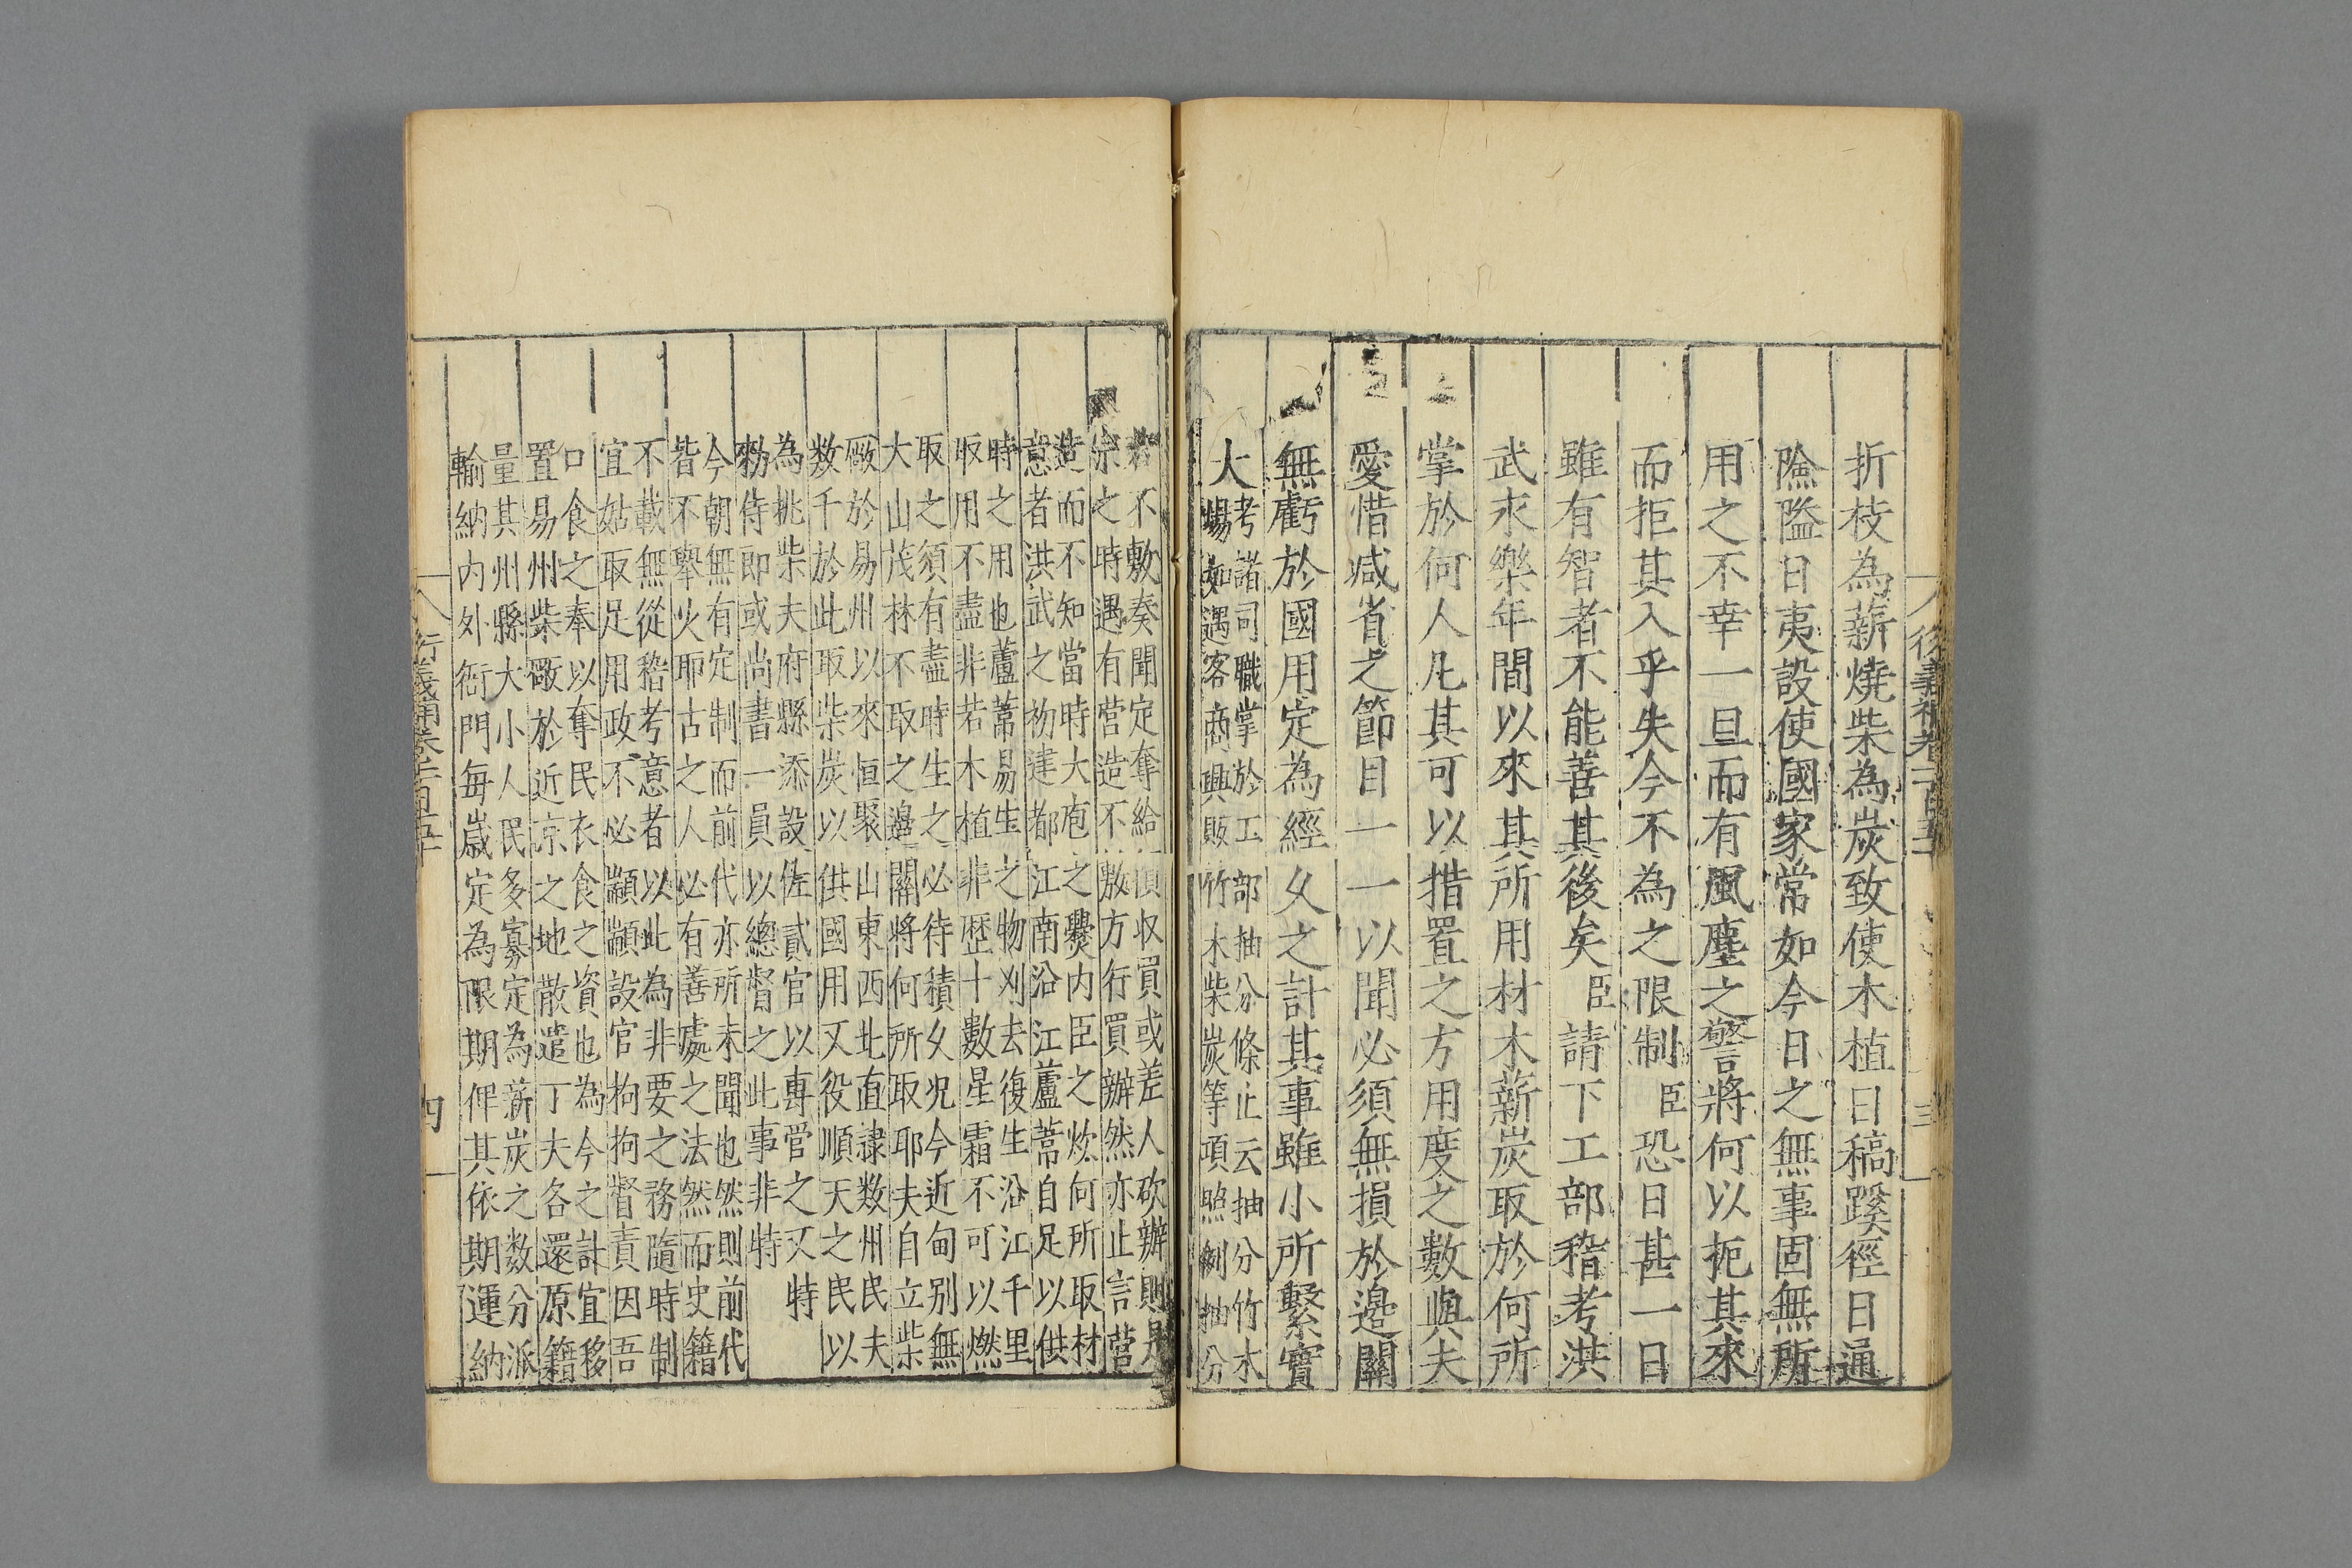 折枝為薪燒柴為炭致使木植日稿蹊徑日通
險隘日夷設使國家常如今日之無事固無所
用之不幸一旦而有風塵之警將何以扼其來
而拒其入乎失今不為之限制臣恐日甚一日
雖有智者不能善其後矣臣請下工部稽考洪
武永樂年間以來其所用材木薪炭取於何所
掌於何人凡其可以措置之方用度之數與夫
愛惜减省之節目一一以聞必須無損於邊關
無虧於國用定為經乆之計其事雖小所繫實
大考諸司職掌於工部抽分條止云抽分竹木
場如遇客商興販竹木柴炭等項照例抽分
若不敷奏聞定奪給價收買或差人砍辦則是
宗之時遇有營造不敷方行買辦然亦止言營
造而不知當時大庖之爨内臣之炊何所取材
意者洪武之初建都江南沿江蘆葦自足以供
時之用也蘆葦易生之物刈去復生沿江千里
取用不盡非若木植非歷十數星霜不可以燃
取之須有盡時生之必待積乆况今近甸别無
大山茂林不取之邊關將何所取耶夫自立柴
厰於易州以來恒聚山東西北直隷数州民夫
数千於此取柴炭以供國用又役順天之民以
為挑柴夫府縣添設佐貳官以專管之又特
勑侍即或尚書一員以總督之此事非特
今朝無有定制而前代亦所未聞也然則前代
皆不舉火耶古之人必有善處之法然而史籍
不載無從稽考意者以此為非要之務隨時制
宜姑取足用政不必顓顓設官拘拘督責因吾
口食之奉以奪民衣食之資也為今之計宜移
置易州柴厰於近京之地散遣丁夫各還原籍
量其州縣大小人民多寡定為薪炭之数分派
輸納内外衙門每歲定為限期俾其依期運納
四